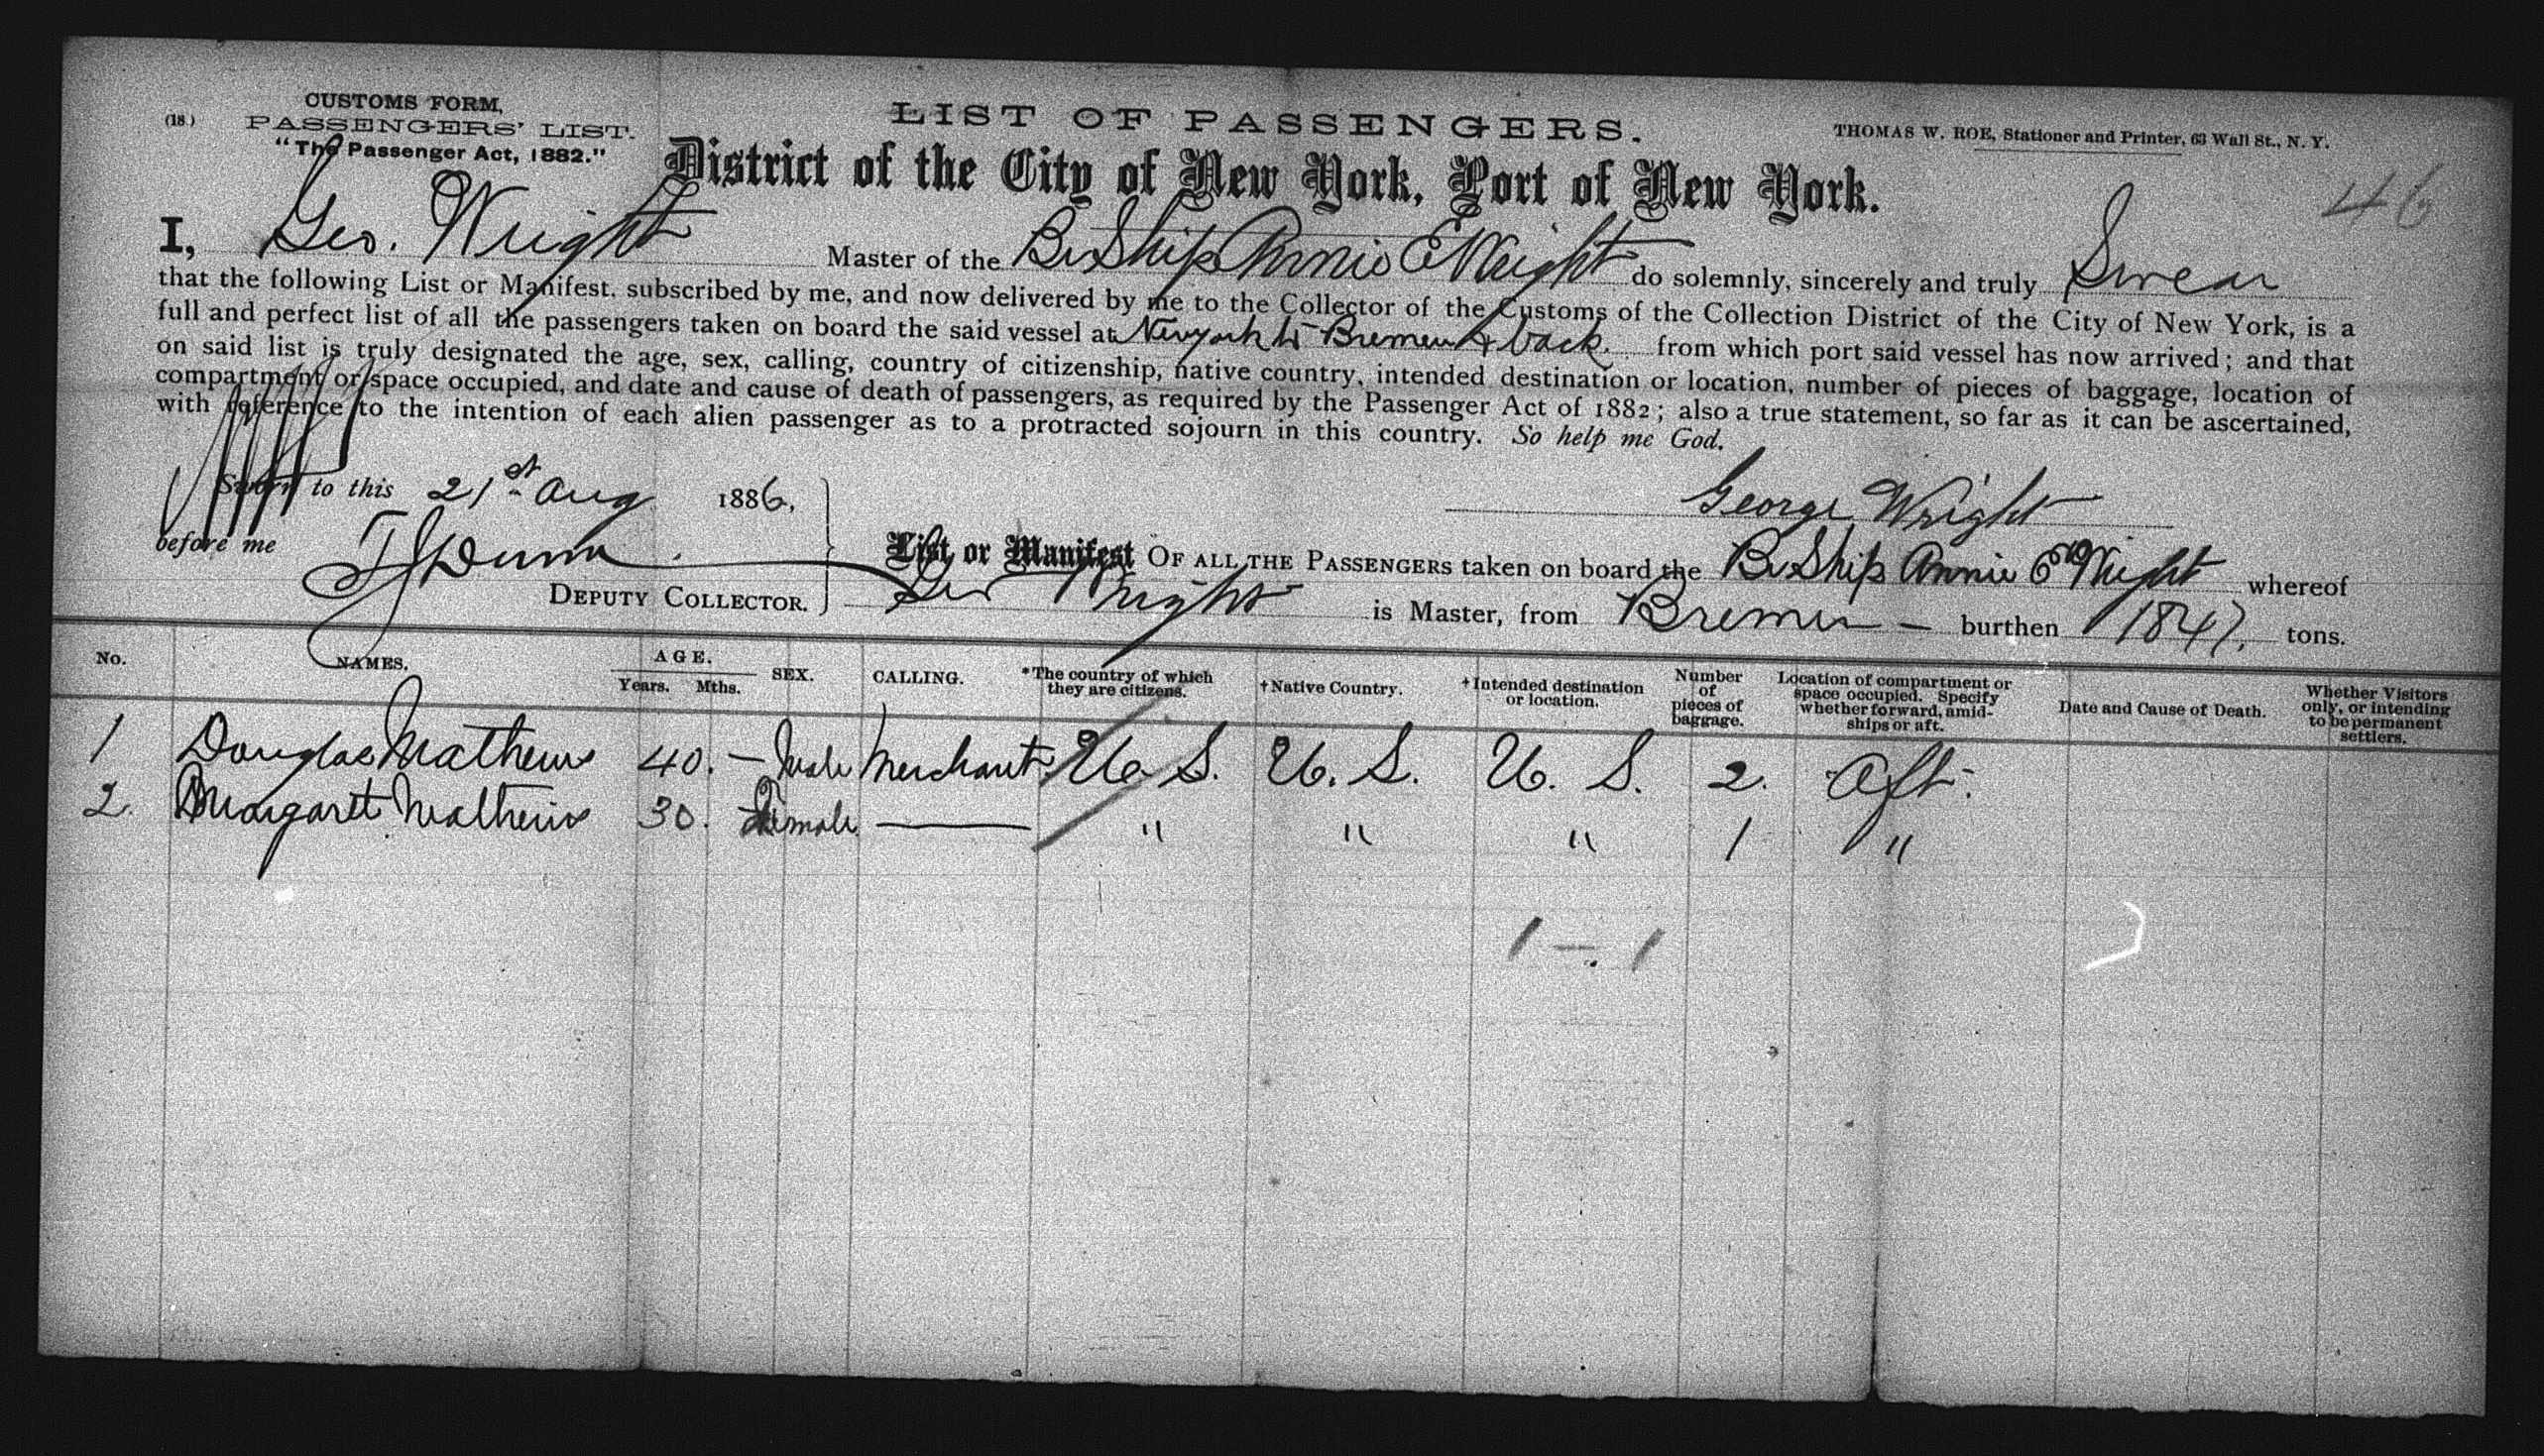 CUSTOMS FORM,
(18.) PASSENGERS' LIST.
"The Passenger Act, 1882."
LIST OF PASSENGERS.
THOMAS W. ROE, Stationer and Printer, 63 Wall St., N. Y.
District of the City of New York, Port of New York.
46
I, Geo. Wright Master of the Br Ship Annie E Wright do solemnly, sincerely and truly Swear
that the following List or Manifest, subscribed by me, and now delivered by me to the Collector of the Customs of the Collection District of the City of New York, is a
full and perfect list of all the passengers taken on board the said vessel at New york to Bremen & back. from which port said vessel has now arrived; and that
on said list is truly designated the age, sex, calling, country of citizenship, native country, intended destination or location, number of pieces of baggage, location of
compartment or space occupied, and date and cause of death of passengers, as required by the Passenger Act of 1882; also a true statement, so far as it can be ascertained,
with reference to the intention of each alien passenger as to a protracted sojourn in this country. So help me God.
Sworn to this 21st Aug 1886,
George Wright
before me T J Dunn
DEPUTY COLLECTOR.
List or Manifest OF ALL THE PASSENGERS taken on board the Br Ship Annie E Wright whereof
Geo Wright is Master, from Bremen — burthen 1847. tons.
No. NAMES. AGE. Years. Mths. SEX. CALLING. *The country of which they are citizens. †Native Country. ‡Intended destination or location. Number of pieces of baggage. Location of compartment or space occupied. Specify whether forward, amidships or aft. Date and Cause of Death. Whether Visitors only, or intending to be permanent settlers.
1 Douglas Mathews 40. — Male Merchant U. S. U. S. U. S. 2. Aft.
2. Margaret Mathews 30. Female — " " " 1 "
1 — 1